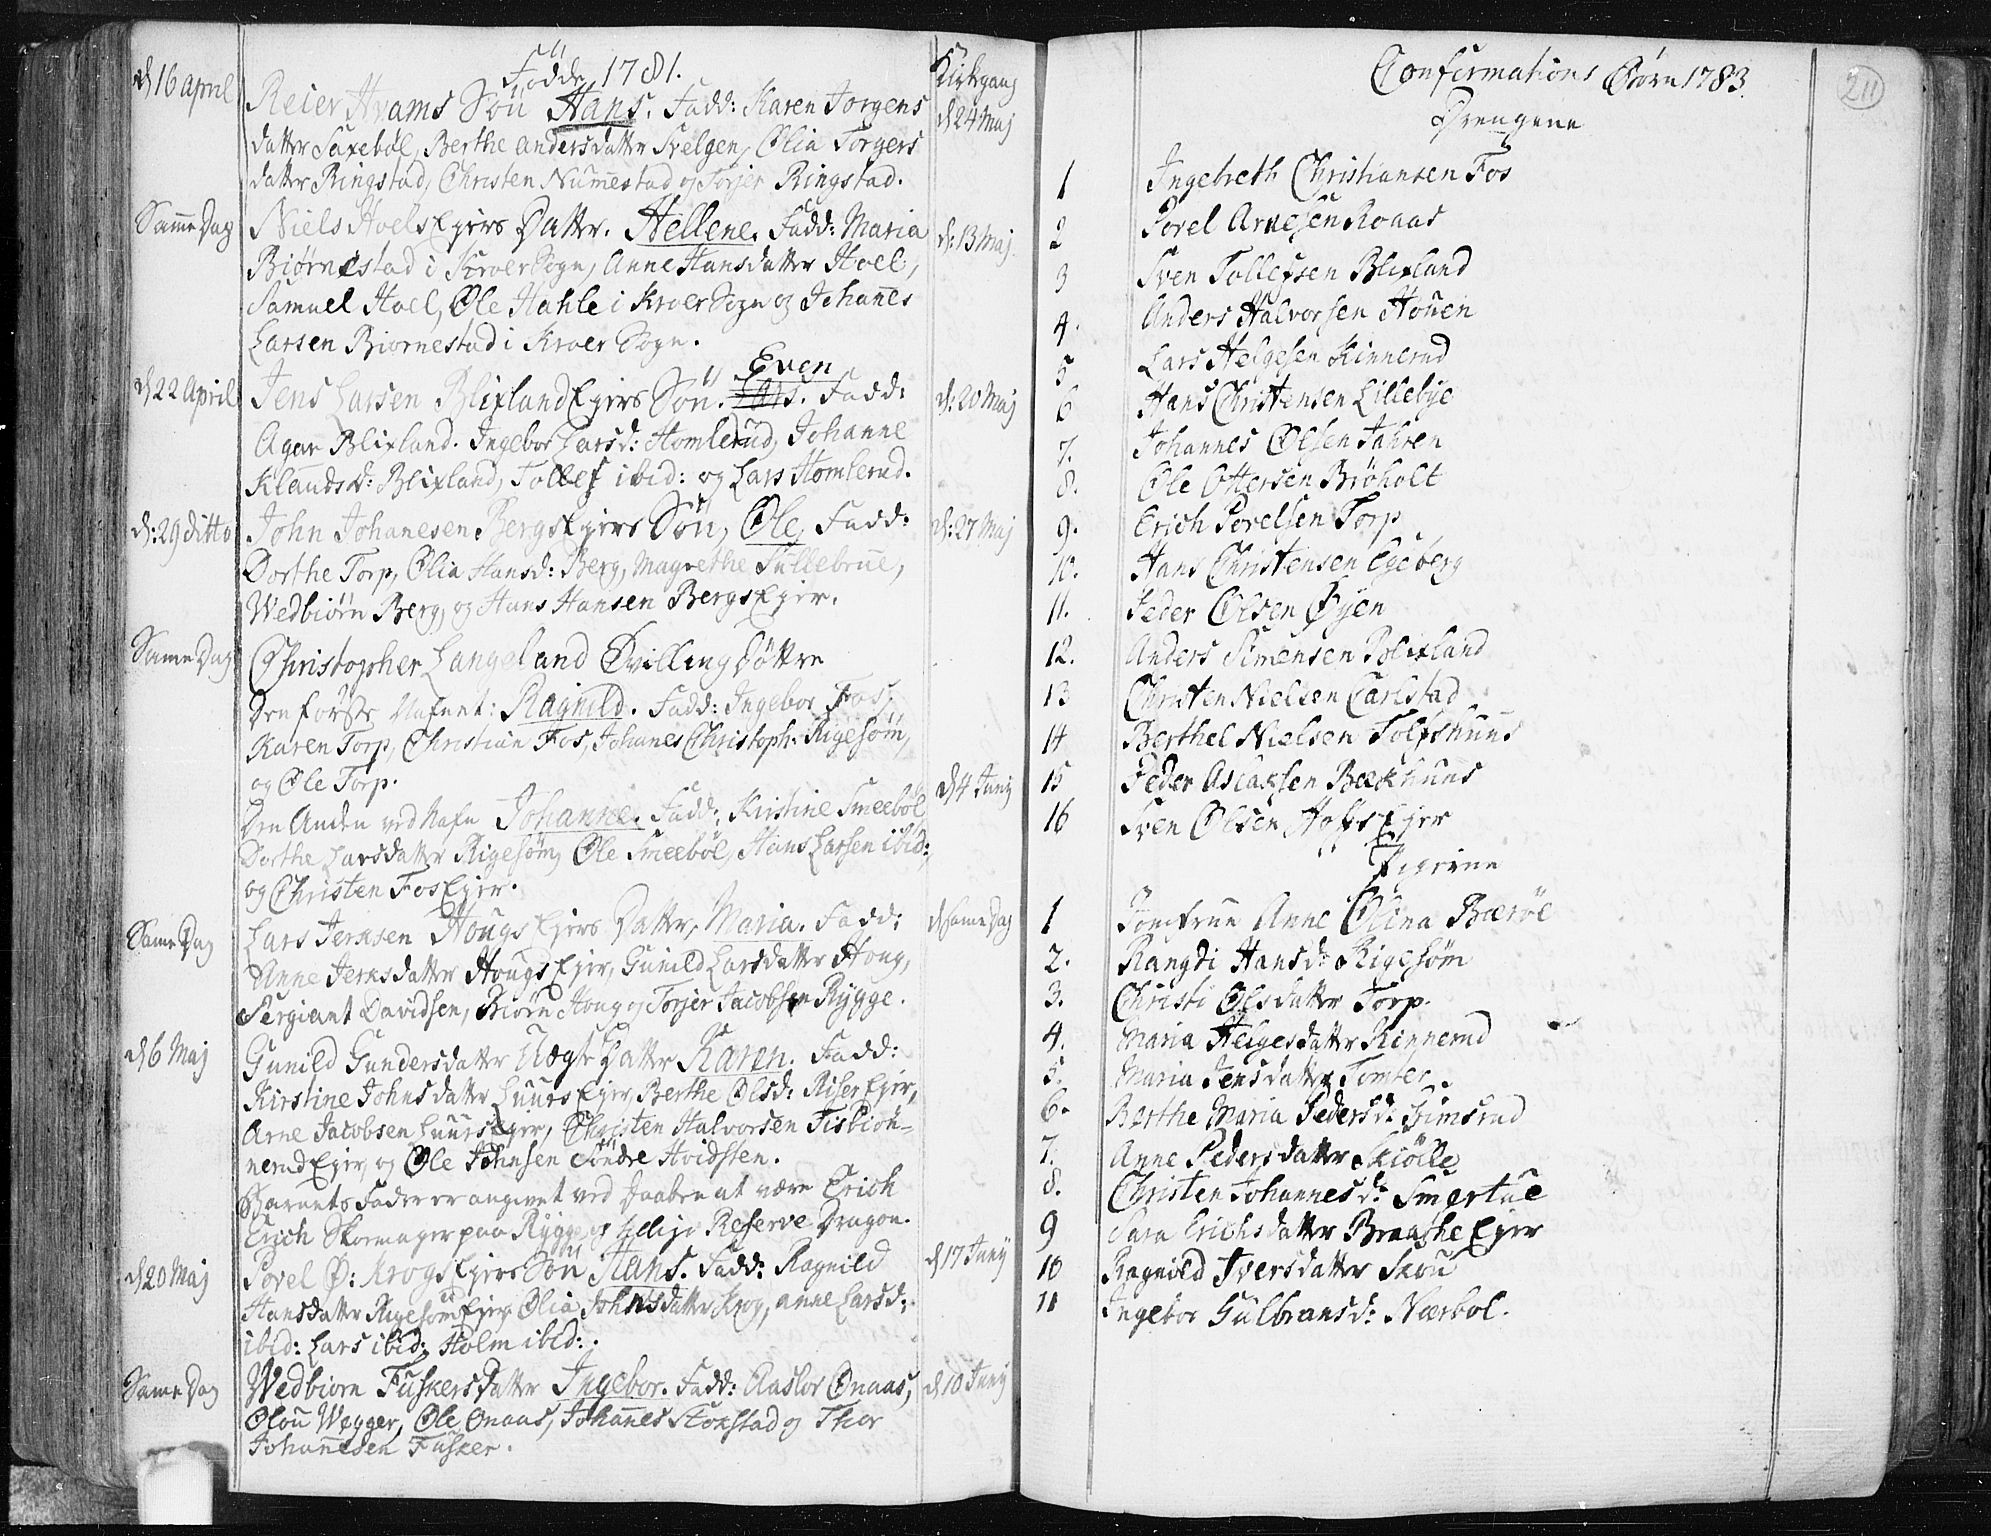 Födde 1781.
Kirkgang
d 16 april
Reier Hvams Sön Hans. Fadd: Karen Jorgens
d 24 Maj
datter Saxeböl, Berthe andersdatter Svelgen, Ølia Torgers
datter Ringstad, Christen Numestad og Torjer Ringstad.
Same Dag
Niels Hoels Ejers Datter. Hellene. Fadd: Maria
d: 13 Maj
Biørnestad i Kroer Sogn, Anne Hansdatter Hoel,
Samuel Hoel, Øle Hahle i Kroer Sogn og Johanes
Larsen Biornestad i Kroer Sogn.
Even
d 22 April
Jens Larsen Blixland Ejers Sön. Lars. Fadd:
d: 20 Maj
Agar Blixland. Ingebor Larsd: Homlerud, Johanne
Klaudsd: Blixland, Tollef ibid: og Lars Homlerud.
d: 29 ditto
John Johanesen Bergs Ejers Sön, Øle, Fadd:
d: 27 Maj
Dorthe Torp, Ølia Hansd: Berg, Magrethe Tullebrue,
Wedbiörn Berg, og Hans Hansen Bergs Ejer.
Same Dag
Christopher Langeland Tvilling Döttre
Den förste Nafnt: Ragnild. Fadd: Ingebor Fos,
Karen Torp, Christian Fos, Johanes Christoph: Rigesöm,
og Øle Torp.
d 4 Junij
Den Anden ved Nafn Johanne. Fadd: Kristine Smeeböl
Dorthe Larsdatter Rigesöm, Øle Smeeböl, Hans Larsen ibid:,
og Christen Fos Ejer.
Same Dag
Lars Jensen Hougs Ejers Datter, Maria. Fadd:
d same Dag
Anne Jensdatter Hougs Ejer, Gunild Larsdatter Houg,
Sergiant Davidsen, Biörn Houg og Torjer Jacobsen Rygge.
d 6 Maj
Gunild Gundersdatter Uægte Datter Karen. Fadd:
Kirstine Johnsdatter Huurs Ejer, Berthe Ølsd: Riser Ejer,
Arne Jacobsen Huurs Ejer, Christen Halvorsen Fisbiön-
nerud Ejer, og Øle Johnsen Söndre Hvidsten.
Barnets Fader er angivet ved Daaben at være Erich
Erich Skomager paa Rygge og Reserve Dragon.
d 20 Maj
Povel Ø: Krogs Ejers Sön Hans. Fadd: Ragnild
d 17 Junij
Hansdatter Rigesöm Ejer, Ølia Johnsdatter Krog, anne Larsd:
ibid: Lars ibid: Holm ibid:.
Same Dag
Wedbiorn Fuskers Datter Ingebor. Fadd: Aaslov Onaas,
d 10 Junij
Ølou Wegger, Øle Onaas, Johanes Stokstad og Thor
Johannesen Fusker.
Confirmations Börn 1783.
211
Drengene
1 Ingebreth Christiansen Fos
2 Povel Arnesen Roaas
3 Sven Tollefsen Blixland
4. Anders Halvorsen Houen
5 Lars Helgesen Kinnerud
6 Hans Christensen Lillebye
7. Johannes Ølsen Jahren
8. Øle Ottersen Bröholt
9. Erich Povelsen Torp
10. Hans Christensen Egeberg
11. Peder Ølsen Øyen
12. Anders Simensen Blixland
13 Christen Nielsen Carlstad
14 Berthel Nielsen Tolfshuus
15 Peder Aslaksen Bækhuus
16 Sven Ølsen Hofs Ejer
Pigerne
1 Jomfrue Anne Ølena Bæröe
2. Rangdi Hansd: Rigesöm
3. Christi Ølsdatter Torp.
4. Maria Helgesdatter Kinnerud
5. Maria Jensdatter Tomter.
6. Berthe Maria Pedersd: Himsrud
7. Anne Pedersdatter Skiölle
8. Christen Johannesd: Smertue
9 Sara Erichsdatter Braathe Ejer
10 Ragnild Iversdatter Skou
11 Ingebor Gulbransd: Nærbol.